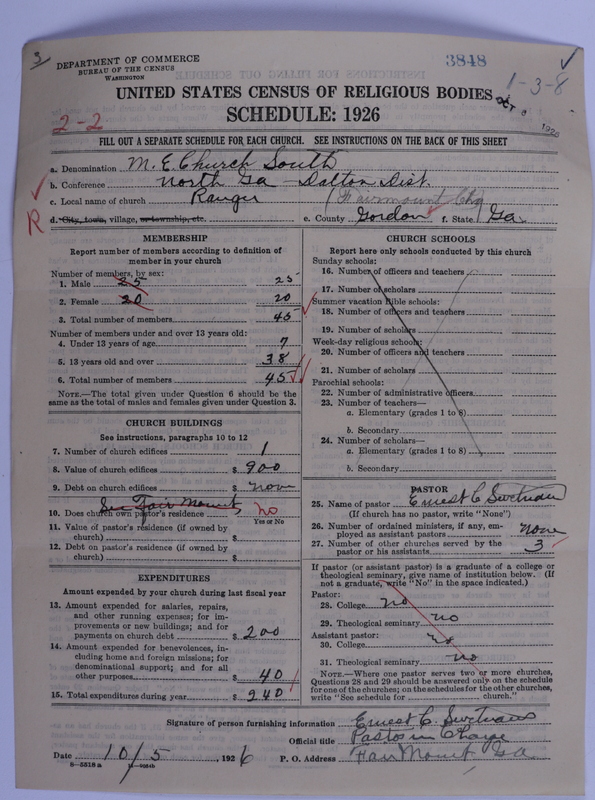 3
DEPARTMENT OF COMMERCE
BUREAU OF THE CENSUS
WASHINGTON
3848
1-3-8
UNITED STATES CENSUS OF RELIGIOUS BODIES
OCT 8 1926
2-2
SCHEDULE: 1926
FILL OUT A SEPARATE SCHEDULE FOR EACH CHURCH. SEE INSTRUCTIONS ON THE BACK OF THIS SHEET
a. Denomination M. E. Church South
b. Conference North Ga - Dalton Dist.
c. Local name of church Ranger (Fairmount Chg)
R
d. City, town, village, or township, etc. e. County Gordon f. State Ga.
MEMBERSHIP
Report number of members according to definition of member in your church
Number of members, by sex:
1. Male 25 25
2. Female 20 20
3. Total number of members 45
Number of members under and over 13 years old:
4. Under 13 years of age 7
5. 13 years old and over 38
6. Total number of members 45
NOTE.—The total given under Question 6 should be the same as the total of males and females given under Question 3.
CHURCH BUILDINGS
See instructions, paragraphs 10 to 12
7. Number of church edifices 1
8. Value of church edifices $ 900
9. Debt on church edifices $ none
See Fair Mount
10. Does church own pastor's residence No
Yes or No
11. Value of pastor's residence (if owned by church) $
12. Debt on pastor's residence (if owned by church) $
EXPENDITURES
Amount expended by your church during last fiscal year
13. Amount expended for salaries, repairs, and other running expenses; for improvements or new buildings; and for payments on church debt $ 200
14. Amount expended for benevolences, including home and foreign missions; for denominational support; and for all other purposes $ 40
15. Total expenditures during year $ 240
CHURCH SCHOOLS
Report here only schools conducted by this church
Sunday schools:
16. Number of officers and teachers
17. Number of scholars
Summer vacation Bible schools:
18. Number of officers and teachers
19. Number of scholars
Week-day religious schools:
20. Number of officers and teachers
21. Number of scholars
Parochial schools:
22. Number of administrative officers
23. Number of teachers—
a. Elementary (grades 1 to 8)
b. Secondary
24. Number of scholars—
a. Elementary (grades 1 to 8)
b. Secondary
PASTOR
25. Name of pastor Ernest C. Swetnam
(If church has no pastor, write "None")
26. Number of ordained ministers, if any, employed as assistant pastors none
27. Number of other churches served by the pastor or his assistants 3
If pastor (or assistant pastor) is a graduate of a college or theological seminary, give name of institution below. (If not a graduate, write "No" in the space indicated.)
Pastor:
28. College no
29. Theological seminary no
Assistant pastor:
30. College no
31. Theological seminary no
NOTE.—Where one pastor serves two or more churches, Questions 28 and 29 should be answered only on the schedule for one of the churches; on the schedules for the other churches, write "See schedule for church."
Signature of person furnishing information Ernest C. Swetnam
Official title Pastor in Charge
Date 10/5, 1926 P. O. Address Fair Mount Ga.
8—5518a